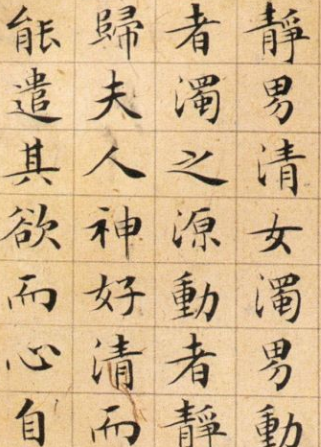 靜男清女濁男動
者濁之源動者靜
歸夫人神好清而
能遣其欲而心自